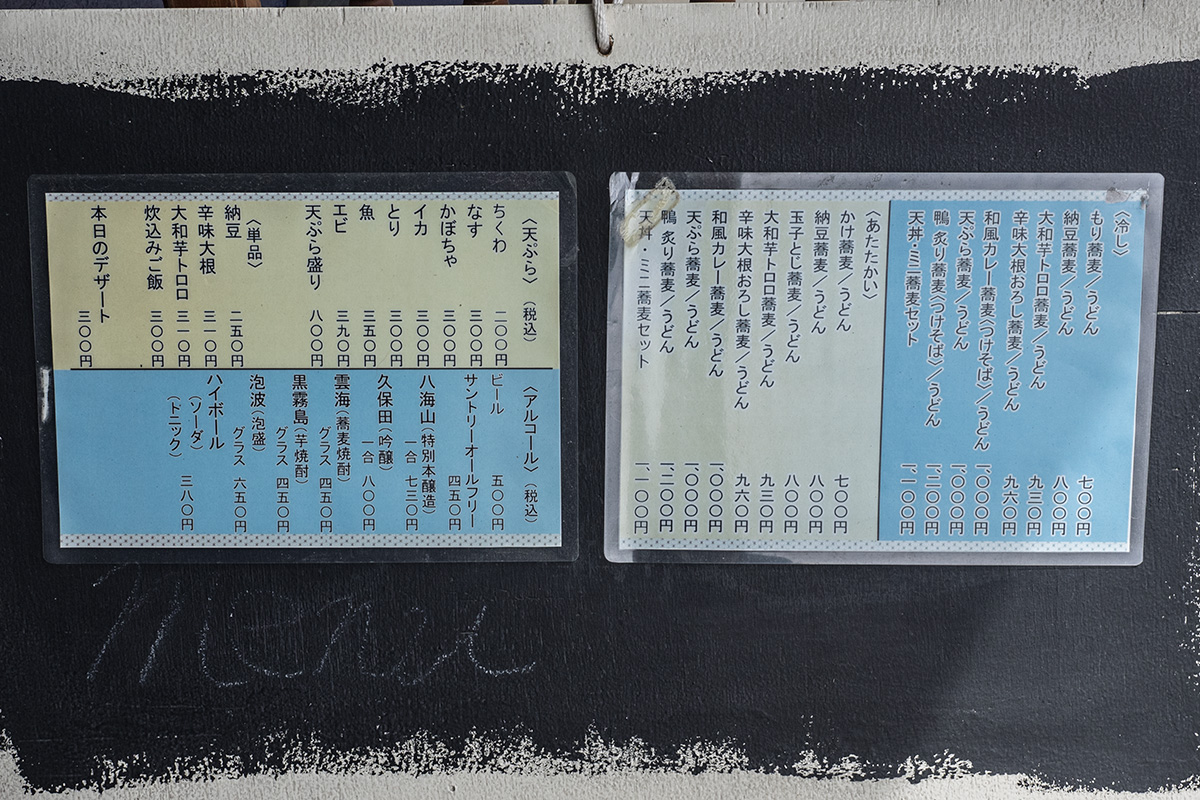 〈冷し〉
もり蕎麦／うどん 七〇〇円
納豆蕎麦／うどん 八〇〇円
大和芋トロロ蕎麦／うどん 九三〇円
辛味大根おろし蕎麦／うどん 九六〇円
和風カレー蕎麦(つけそば)／うどん 一、〇〇〇円
天ぷら蕎麦／うどん 一、〇〇〇円
鴨 炙り蕎麦(つけそば)／うどん 一、二〇〇円
天丼・ミニ蕎麦セット 一、一〇〇円
〈あたたかい〉
かけ蕎麦／うどん 七〇〇円
納豆蕎麦／うどん 八〇〇円
玉子とじ蕎麦／うどん 八〇〇円
大和芋トロロ蕎麦／うどん 九三〇円
辛味大根おろし蕎麦／うどん 九六〇円
和風カレー蕎麦／うどん 一、〇〇〇円
天ぷら蕎麦／うどん 一、〇〇〇円
鴨 炙り蕎麦／うどん 一、二〇〇円
天丼・ミニ蕎麦セット 一、一〇〇円
〈天ぷら〉(税込)
ちくわ 二〇〇円
なす 三〇〇円
かぼちゃ 三〇〇円
イカ 三〇〇円
とり 三〇〇円
魚 三五〇円
エビ 三九〇円
天ぷら盛り 八〇〇円
〈単品〉
納豆 二五〇円
辛味大根 三一〇円
大和芋トロロ 三一〇円
炊込みご飯 三〇〇円
本日のデザート 三〇〇円
〈アルコール〉(税込)
ビール 五〇〇円
サントリーオールフリー 四五〇円
八海山(特別本醸造)
一合 七三〇円
久保田(吟醸)
一合 八〇〇円
雲海(蕎麦焼酎)
グラス 四五〇円
黒霧島(芋焼酎)
グラス 四五〇円
泡波(泡盛)
グラス 六五〇円
ハイボール
(ソーダ)
(トニック) 三八〇円
Menu